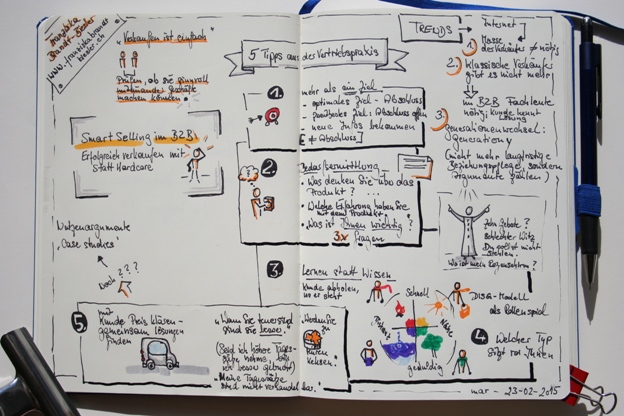 Franziska
Brandt-Biesler
www.franziskabrandt
biesler.de
"Verkaufen ist einfach"
Prüfen, ob sie sinnvoll
miteinander Geschäfte
machen können.
Smart Selling im B2B
Erfolgreich verkaufen mit
Statt Hardcore
Nutzenargumente
"Case studies"
???
5 Tipps aus der Vertriebspraxis
1.
mehr als ein Ziel
- optimales Ziel - Abschluss
- Abschluss offen
- neue Infos bekommen
≠ Abschluss]
2.
Bedarfsermittlung
• Was denken Sie über das
Produkt? ...
• Welche Erfahrung haben Sie
mit dem Produkt
• Was ist Ihnen wichtig?
3x
fragen
3.
Lernen statt Wissen
Kunde abholen,
wo er steht
TRENDS
Internet
1.
Masse
des Verkäufers ≠ nötig
2.)
Klassische Verkäufer
gibt es nicht mehr
im B2B Fachleute
nötig; Kunde kennt
3.
Generationenwechsel:
Generation Y
(nicht mehr langfristige
Beziehungspflege, sondern
Argumente zählen)
Zehn Gebote?
schlechter Witz
Du sollst nicht
stehlen.
Wo ist mein Regenschirm?
schnell
geduldig
DISG-Modell
als Rollenspiel
4.
Welcher Typ
sitzt vor Ihnen
5.
mit
Kunde Preis klären -
gemeinsam Lösungen
finden
"Wenn Sie teurer sind
sind Sie besser."
(Seit ich höhere Tages-
sätze nehme, bin
ich besser gebucht)
Meine Tagessätze
sind nicht verhandelbar."
mar - 23-02-2015